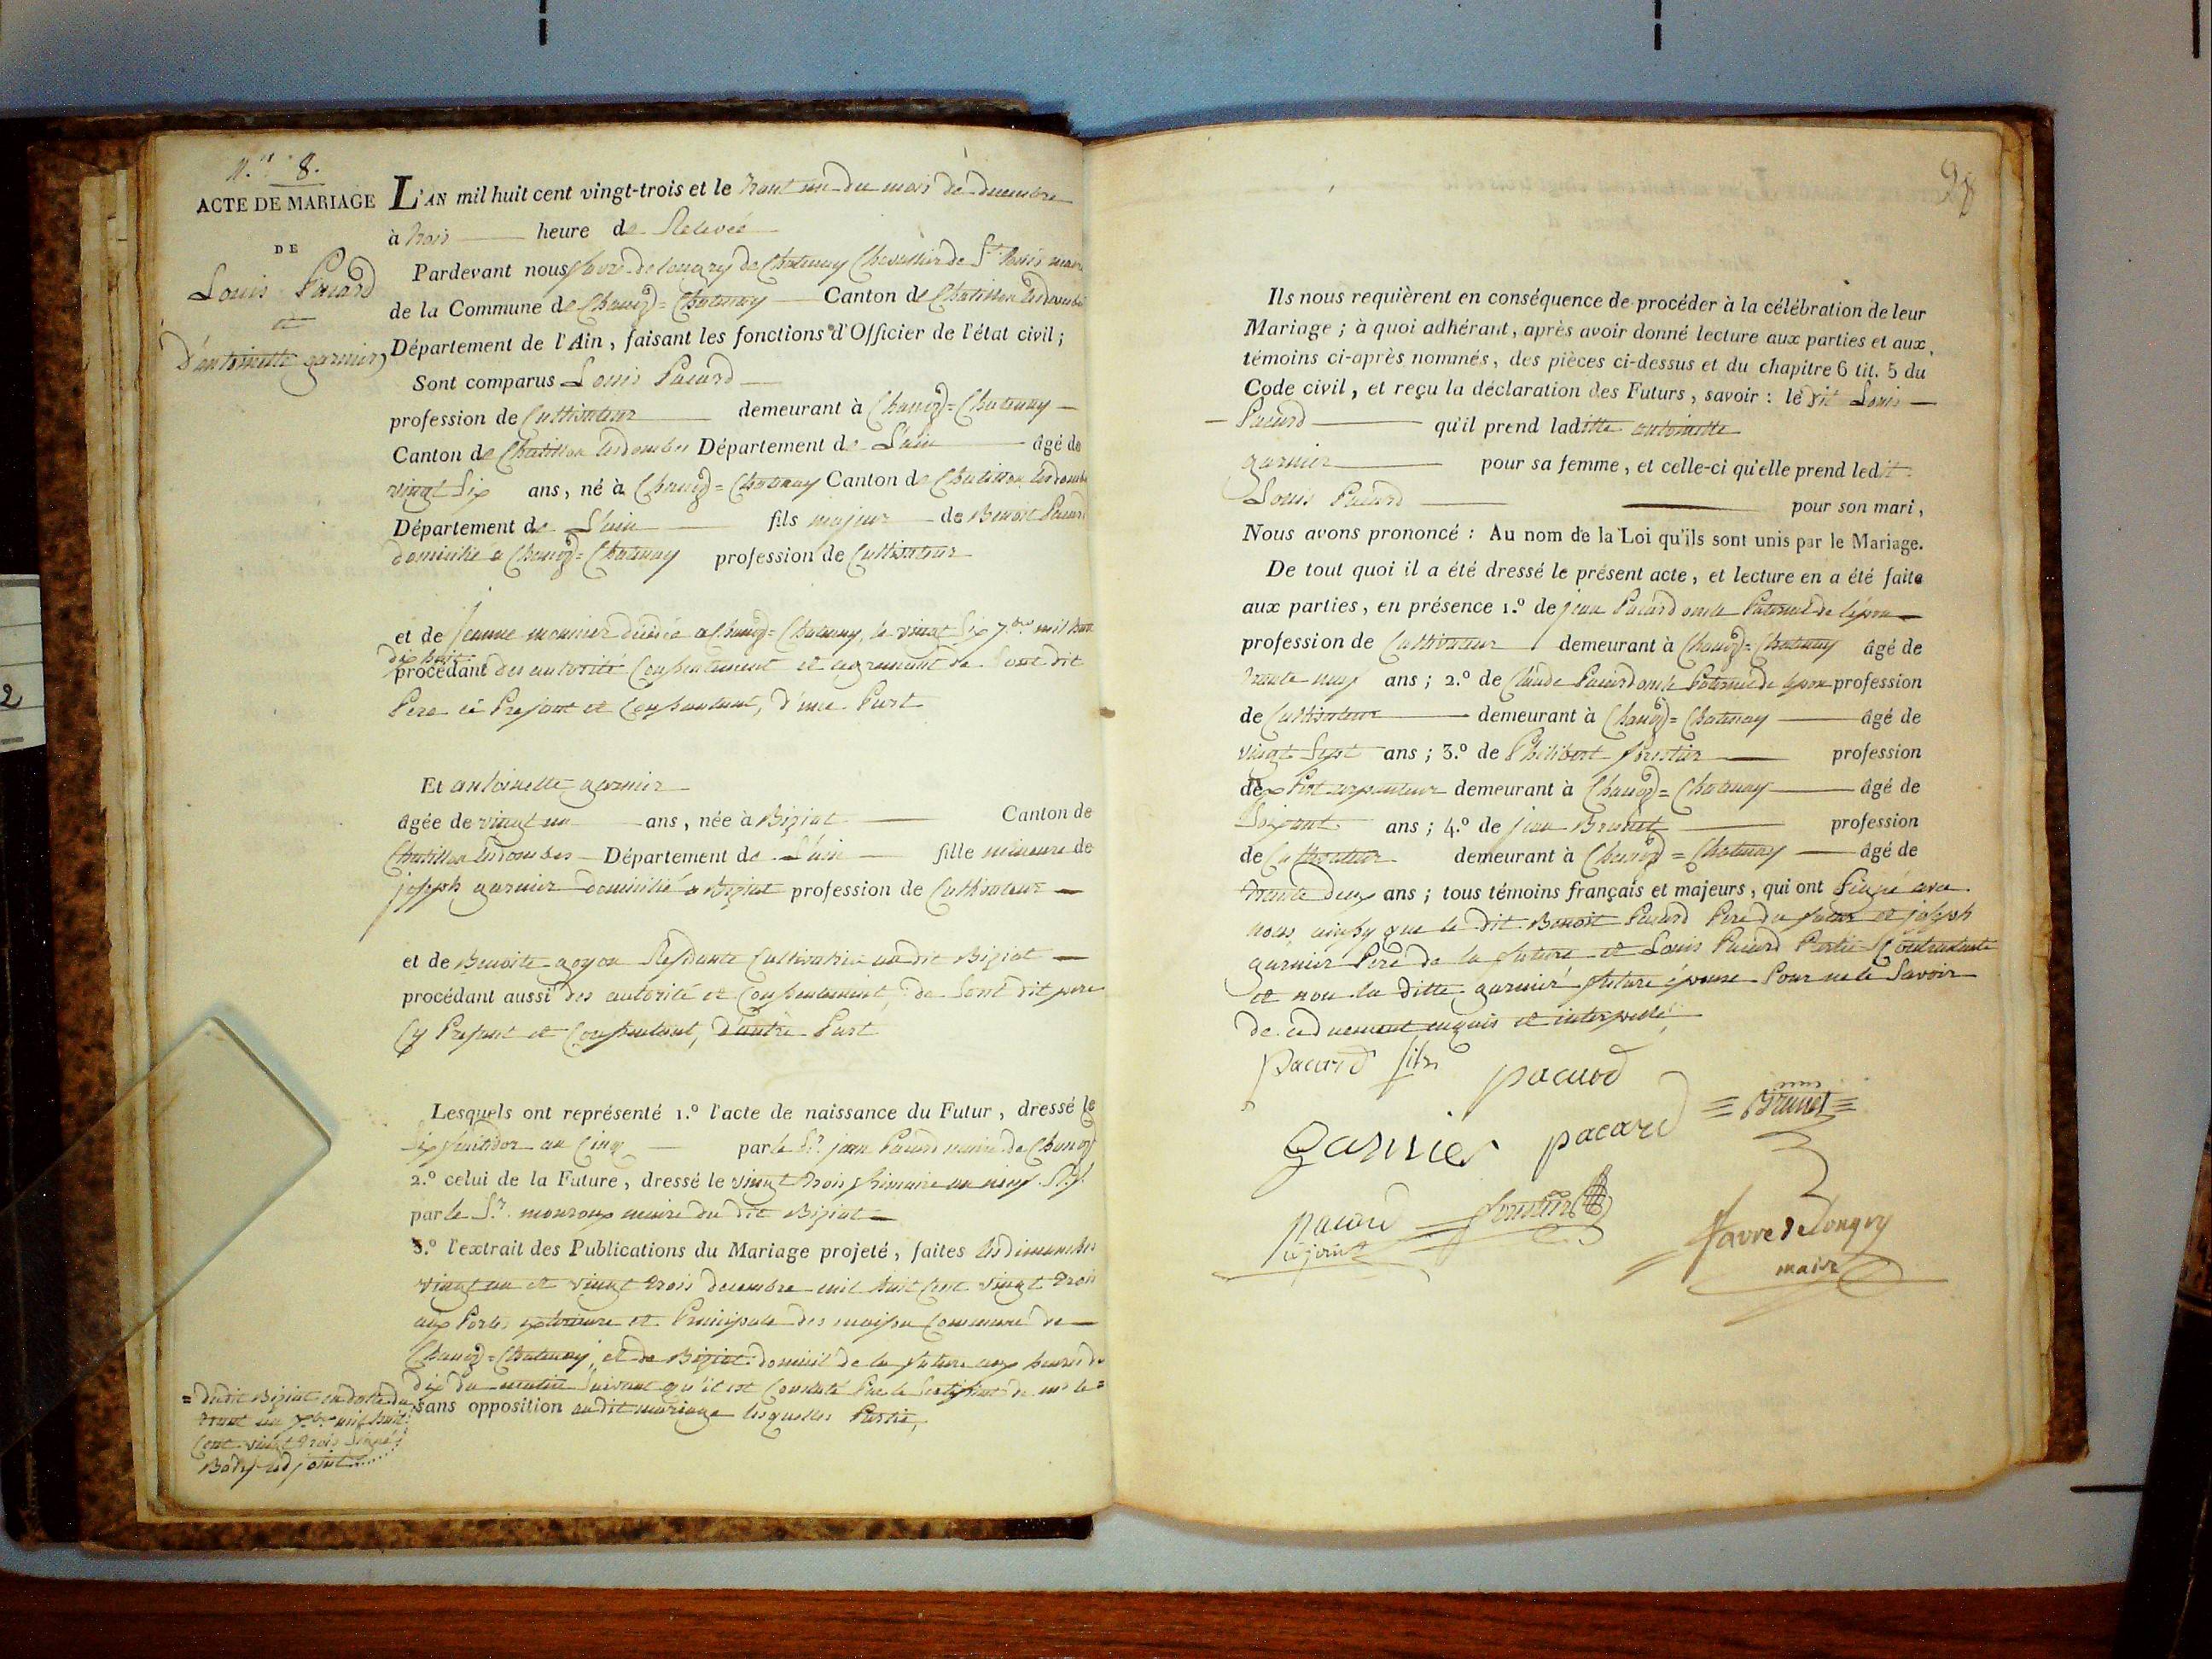 N.o 8.
ACTE DE MARIAGE
DE
Louis Pacard
et
D'antoinette garnier
L'AN mil huit cent vingt-trois et le trent un du mois de decembre
à trois heure de Relevée
Pardevant nous favre de longry de Chatenay Chevallier de St Louis maire
de la Commune de Chanoz=Chatenay Canton de Chatillon lesdombes
Département de l'Ain, faisant les fonctions d'Officier de l'état civil;
Sont comparus Louis Pacard
profession de Cultivateur demeurant à Chanoz=Chatenay
Canton de Chatillon lesdombes Département de L'ain âgé de
vingt six ans, né à Chanoz=Chatenay Canton de Chatillon lesdombes
Département de L'ain fils majeur de Benoit Pacard
domicilié a Chanoz=Chatenay profession de Cultivateur
et de Jeanne monnier décédée a Chanoz=Chatenay, le vingt six 7.bre mil huit
dix huit
procédant des autorité Consentement et agrement de sont dit
Pere cé Present et Consentant, d'une Part
Et antoinette garnier
âgée de vingt un ans, née à Biziat Canton de
Chatillon lesdombes Département de L'ain fille mineure de
joseph garnier domicilié a Biziat profession de Cultivateur
et de Benoite goyon Residante Cultivatrice au dit Biziat
procédant aussi des autorité et Consentement de sont dit pere
Cy Present et Consentant, d'autre Part
Lesquels ont représenté 1.o l'acte de naissance du Futur, dressé le
six fruitidor an Cinq par le Sr. jean Pacard maire de Chanoz
2.o celui de la Future, dressé le vingt trois frimaire an neuf
par le Sr. monroux maire du dit Biziat
3.o l'extrait des Publications du Mariage projeté, faites les dimanches
vingt un et vingt trois decembre mil huit Cent vingt trois
aux Portes exterieure et Principale des maison Commune de
Chanoz=Chatenay, et de Biziat domicil de la future aux heures de
dix du matin suivant qu'il est Constaté Par le Certificat de mr le=
sans opposition au dit mariage lesquelles Partie,
= du dit Biziat en datte du
trent un Xbre mil huit
Cent vingt trois signé
Body adjoint
28
Ils nous requièrent en conséquence de procéder à la célébration de leur
Mariage; à quoi adhérant, après avoir donné lecture aux parties et aux
témoins ci-après nommés, des pièces ci-dessus et du chapitre 6 tit. 5 du
Code civil, et reçu la déclaration des Futurs, savoir: le dit Louis
Pacard qu'il prend laditte antoinette
garnier pour sa femme, et celle-ci qu'elle prend ledit
Louis Pacard pour son mari,
Nous avons prononcé: Au nom de la Loi qu'ils sont unis par le Mariage.
De tout quoi il a été dressé le présent acte, et lecture en a été faite
aux parties, en présence 1.o de jean Pacard oncle Paternel de lépoux
profession de Cultivateur demeurant à Chanoz=Chatenay âgé de
trante neuf ans; 2.o de Claude Pacard oncle Paternel de lépoux profession
de Cultivateur demeurant à Chanoz=Chatenay âgé de
vingt sept ans; 3.o de Philibert forestier profession
de arpenteur demeurant à Chanoz=Chatenay âgé de
soixant ans; 4.o de jean Brunet profession
de Cultivateur demeurant à Chanoz=Chatenay âgé de
trante deux ans; tous témoins français et majeurs, qui ont signé avec
nous ainsy que le dit Benoit Pacard Pere du futur et joseph
garnier Pere de la future et Louis Pacard Partie Contractante
et non la ditte garnier future épouse Pour ne le savoir
de ce duement enquis et interpellé
pacard fils pacard
Brunet
garnier pacard
pacard forestier
adjoint
favre de longry
maire